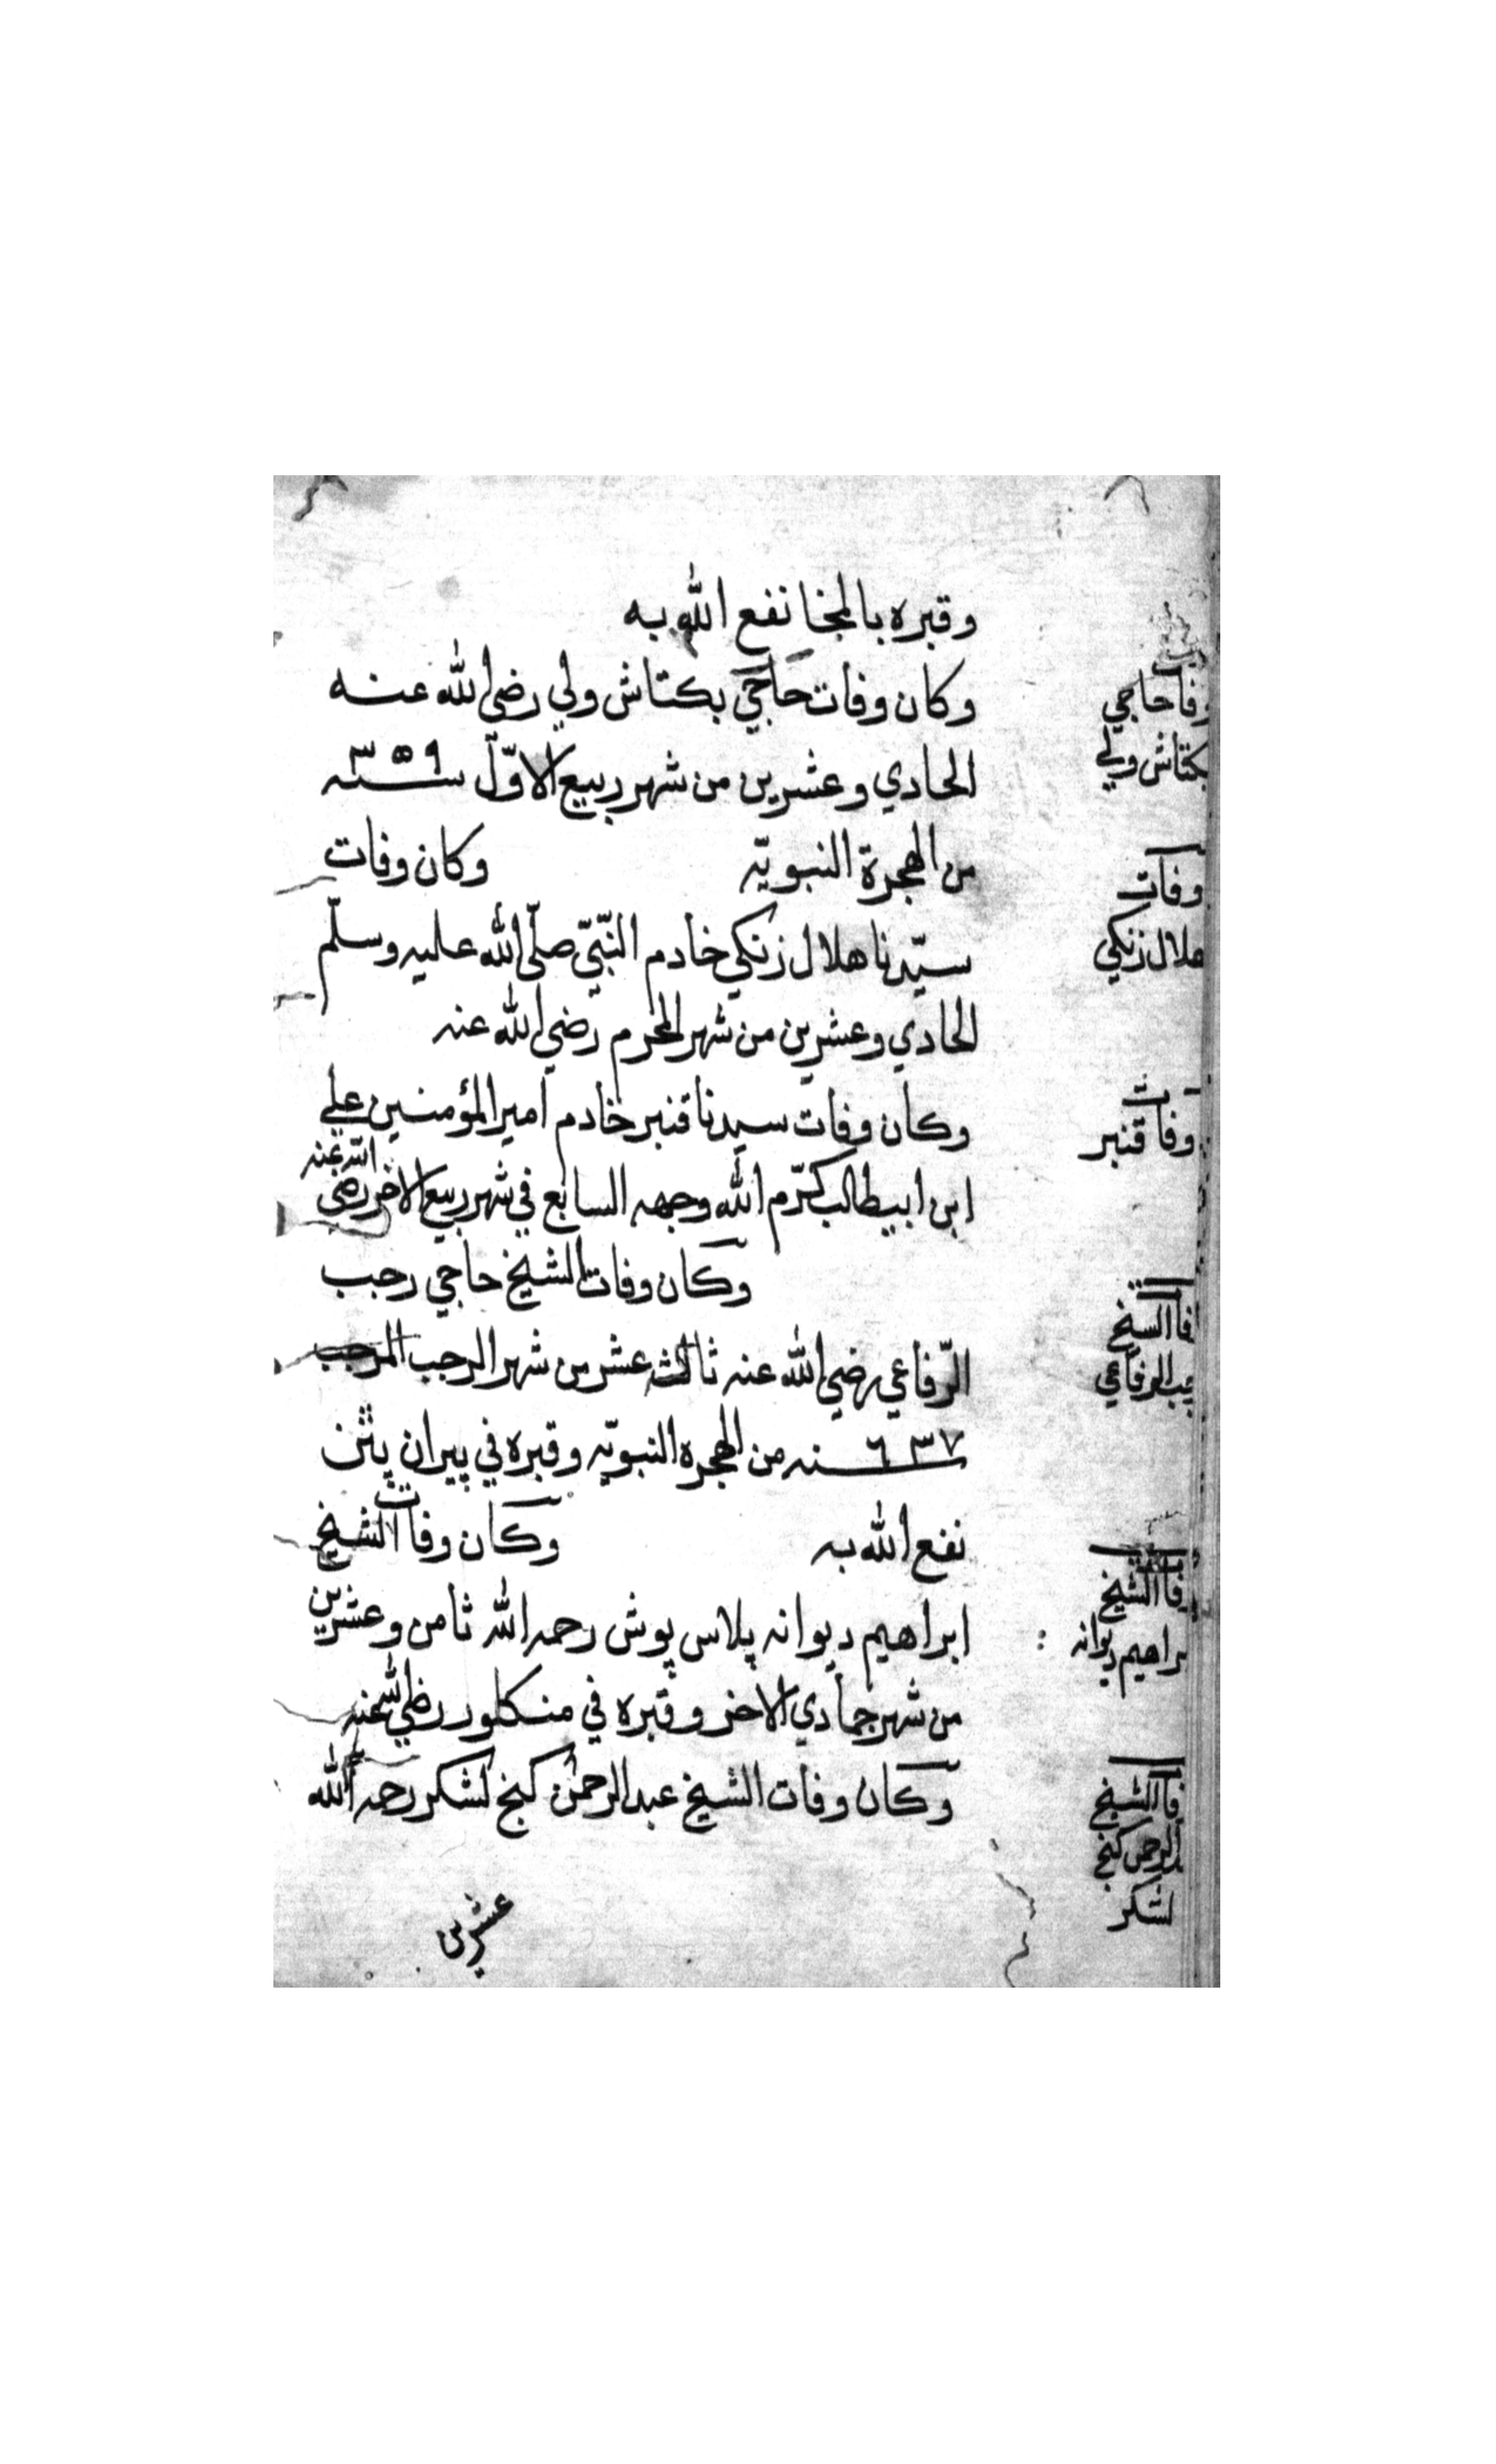 وقبره بالمخا نفع الله به
وكان وفات حاجي بكتاش ولي رضي الله عنه
الحادي وعشرين من شهر ربيع الاوّل سنه ٣٥٩
من الهجرة النبويّه وكان وفات
سيّدنا هلال زنكي خادم النّبيّ صلّى الله عليه وسلّم
الحادي وعشرين من شهر المحرم رضي الله عنه
وكان وفات سيدنا قنبر خادم امير المؤمنين علي
ابن ابيطالب كرّم الله وجهه السابع في شهر ربيع الاخر رضي الله عنه
وكان وفات الشيخ حاجي رجب
الرّفاعي رضي الله عنه ثالث عشر من شهر الرجب المرجب
٦٣٧ سنه من الهجره النبويّه وقبره في پيران پتن
نفع الله به وكان وفات الشيخ
ابراهيم ديوانه پلاس پوش رحمه الله ثامن وعشرين
من شهر جمادي الاخر وقبره في منكلور رضي الله عنه
وكان وفات الشيخ عبد الرحمن كنج لشكر رحمه الله
عشرين
وفات حاجي
بكتاش ولي
وفات
هلال زنكي
وفات قنبر
وفات الشيخ
رجب الرفاعي
وفات الشيخ
ابراهيم ديوانه
وفات الشيخ
عبد الرحمن كنج
لشكر